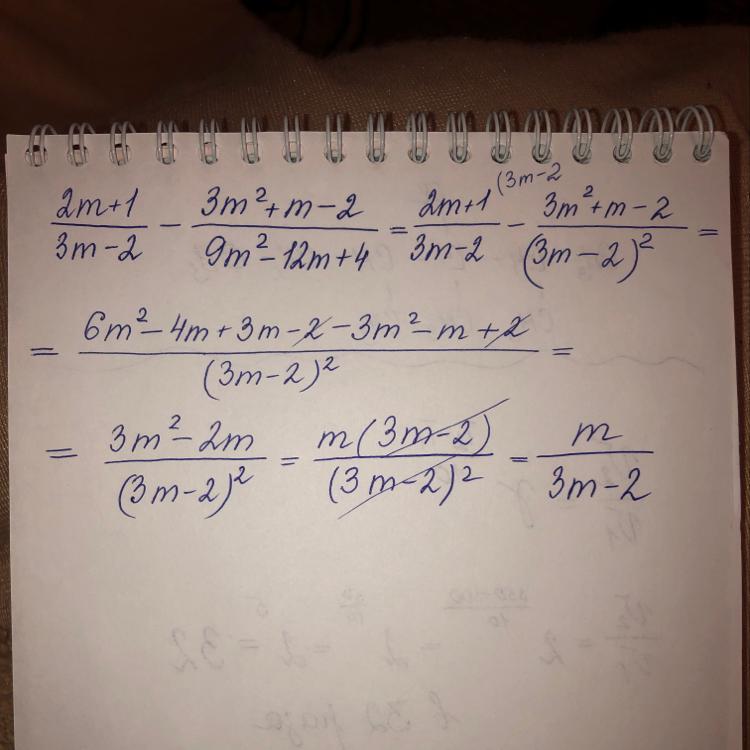 (2m+1)/(3m-2) - (3m²+m-2)/(9m²-12m+4) = (2m+1)/(3m-2) (3m-2 - (3m²+m-2)/(3m-2)² =
= (6m²-4m+3m-2-3m²-m+2)/(3m-2)² =
= (3m²-2m)/(3m-2)² = m(3m-2)/(3m-2)² = m/(3m-2)